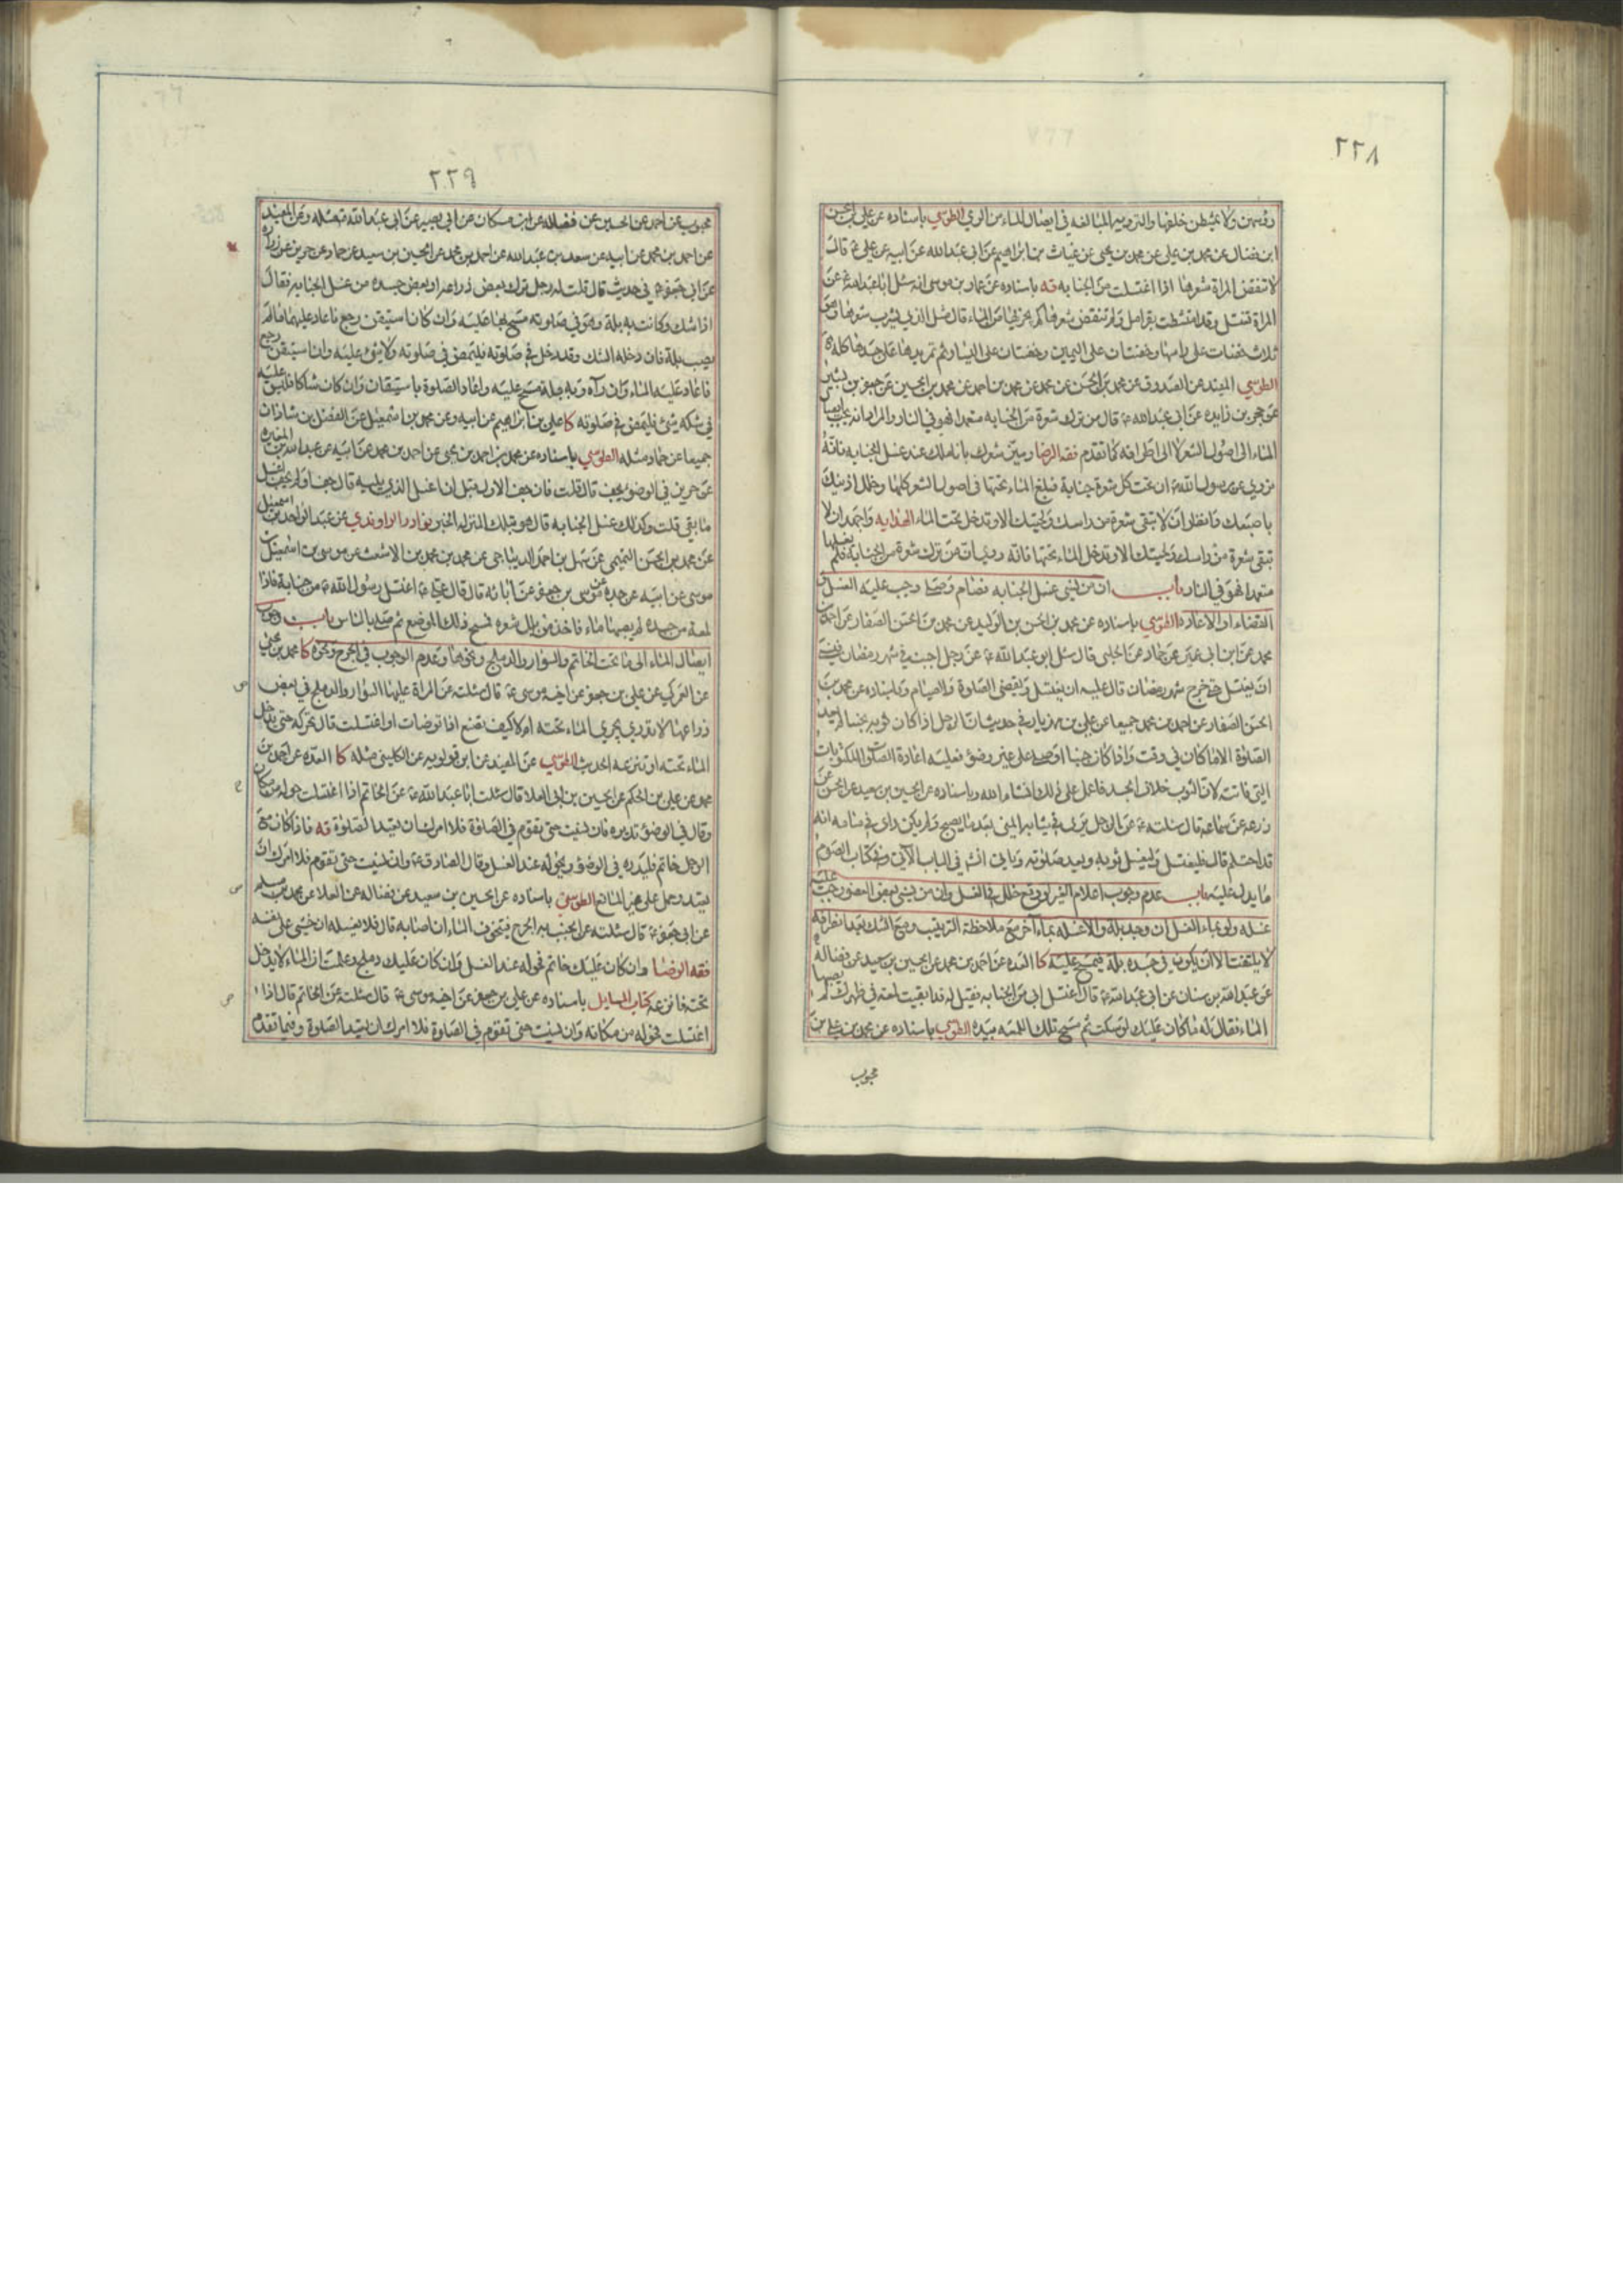 ٢٢٨
رؤسهن ولا يمشطن خلفها والتروية المبالغه في ايصال الماء من الري الطوسي باسناده عن علي بن الحسن
ابن فضال عن محمد بن علي عن محمد بن يحيى عن غياث بن ابراهيم عن ابى عبدالله عن ابيه عن علي ع قال
لا تنقض المراة شعرها اذا اغتسلت من الجنابه قه باسناده عن عمار بن موسى انه سئل ابا عبدالله ع عن
المراة تغتسل وقد امتشطت بقرامل ولم تنقض شعرها كم يجزيها من الماء قال مثل الذي يشرب شعرها وهو
ثلاث حفنات على راسها وحفنتان على اليمين وحفنتان على اليسار ثم تمر يدها على جسدها كله
الطوسي المفيد عن الصدوق عن محمد بن الحسن عن محمد عن محمد بن احمد عن محمد بن الحسين عن جعفر بن بشير
عن حجر بن زايده عن ابى عبدالله ع قال من ترك شعرة من الجنابه متعمدا فهو في النار والمراد انه يجب ايصال
الماء الى اصول الشعر لا الى اطرافه كما تقدم فقه الرضا وميز شعرك باناملك عند غسل الجنابه فانه
نروي عن رسول الله ان تحت كل شعرة جنابة فبلغ الماء تحتها في اصول الشعر كلها وخلل اذنيك
باصبعك وانظر ان لا تبقى شعرة من راسك ولحيتك الا وتدخل تحت الماء الهدايه واجهد ان لا
تبقى شعرة من راسك ولحيتك الا وتدخل الماء تحتها فانه روي ان من ترك شعرة من الجنابة فلم يغسلها
متعمدا فهو في النار باب ان من نسي غسل الجنابه فصام وصلى وجب عليه الغسل و
القضاء او الاعاده الطوسي باسناده عن محمد بن الحسن بن الوليد عن محمد بن الحسن الصفار عن احمد بن
محمد عن ابن ابى عمير عن حماد عن الحلبى قال سئل ابو عبدالله ع عن رجل اجنب في شهر رمضان فنسي
ان يغتسل حتى خرج شهر رمضان قال عليه ان يغتسل ويقضى الصلوة والصيام وباسناده عن محمد بن
الحسن الصفار عن احمد بن محمد جميعا عن علي بن مهزيار في حديث ان الرجل اذا كان ثوبه نجسا لم يعد
الصلوة الا ما كان في وقت واذا كان جنبا او صلى على غير وضوء فعليه اعادة الصلوات المكتوبات
التي فاتته لان الثوب خلاف الجسد فاعمل على ذلك انشاء الله وباسناده عن الحسين بن سعيد عن الحسن عن
زرعه عن سماعه قال سئلته ع عن الرجل يرى في ثيابه المني بعد ما يصبح ولم يكن راى في منامه انه
قد احتلم قال فليغتسل وليغسل ثوبه ويعيد صلوته وياتى انش في الباب الآتى وفي كتاب الصوم
ما يدل عليه باب عدم وجوب اعلام الغير لو وقع خلل في الغسل وان من نسي بعض العضو وجب عليه
غسله ولو بماء الغسل ان وجد بلة والا غسله بماء آخر مع ملاحظة الترتيب ومع الشك بعد انصرافه
لا يلتفت الا ان يكون في جسده بلة فيمسح عليه كا العده عن احمد بن محمد عن الحسين بن سعيد عن فضاله
عن عبدالله بن سنان عن ابى عبدالله ع قال اغتسل ابى من الجنابه فقيل له قد ابقيت لمعة في ظهرك لم يصبها
الماء فقال له ما كان عليك لو سكت ثم مسح تلك اللمعه بيده الطوسي باسناده عن محمد بن علي بن
محبوب
٢٢٩
محبوب عن احمد عن الحسين عن فضاله عن ابن مسكان عن ابى بصير عن ابى عبدالله مثله وعن المفيد
عن احمد بن محمد عن ابيه عن سعد بن عبدالله عن احمد بن محمد عن الحسين بن سعيد عن حماد عن حريز عن زراره
عن ابى جعفر ع في حديث قال قلت له رجل ترك بعض ذراعه او بعض جسده من غسل الجنابه فقال
اذا شك وكانت به بلة وهو في صلوته مسح بها عليه وان كان استيقن رجع فاعاد عليهما ما لم
يصب بلة فان دخله الشك وقد دخل في صلوته فليمض في صلوته ولا شئ عليه وان استيقن رجع
فاعاد عليه الماء وان رآه وبه بلة مسح عليه واعاد الصلوة باستيقان وان كان شاكا فليس عليه
في شكه شئ فليمض في صلوته كا علي بن ابراهيم عن ابيه وعن محمد بن اسمعيل عن الفضل بن شاذان
جميعا عن حماد مثله الطوسي باسناده عن محمد بن احمد بن يحيى عن احمد بن محمد عن ابيه عن عبدالله بن المغيره
عن حريز في الوضوء يجف قال قلت فان جف الاول قبل ان اغسل الذي يليه قال جف او لم يجف اغسل
ما بقي قلت وكذلك غسل الجنابه قال هو بتلك المنزله الخبر نوادر الراوندي عن عبد الواحد بن اسمعيل
عن محمد بن الحسن التميمى عن سهل بن احمد الديباجى عن محمد بن محمد بن الاشعث عن موسى بن اسمعيل بن
موسى عن ابيه عن جده موسى بن جعفر عن آبائه قال قال علي ع اغتسل رسول الله ص من جنابة فاذا
لمعة من جسده لم يصبها ماء فاخذ من بلل شعره فمسح ذلك الموضع ثم صلى بالناس باب وجوب
ايصال الماء الى ما تحت الخاتم والسوار والدملج ونحوها وعدم الوجوب في الجرح ونحوه كا محمد بن يحيى
عن العمركي عن علي بن جعفر عن اخيه موسى ع قال سئلته عن المراة عليها السوار والدملج في بعض
ذراعها لا تدري يجري الماء تحته ام لا كيف تصنع اذا توضات او اغتسلت قال تحركه حتى يدخل
الماء تحته او تنزعه الحديث الطوسي عن المفيد عن ابن قولويه عن الكلينى مثله كا العده عن احمد بن
محمد عن علي بن الحكم عن الحسين بن ابى العلا قال سئلت ابا عبدالله ع عن الخاتم اذا اغتسلت قال حوله من مكانه
وقال في الوضوء تديره فان نسيت حتى تقوم في الصلوة فلا امرك ان تعيد الصلوة قه فاذا كان مع
الرجل خاتم فليدره في الوضوء ويحوله عند الغسل وقال الصادق ع وان نسيت حتى تقوم فلا امرك ان
تعيد وحمل على غير المانع الطوسي باسناده عن الحسين بن سعيد عن فضاله عن العلا عن محمد بن مسلم
عن ابى جعفر ع قال سئلته عن الجنب به الجرح فيتخوف الماء ان اصابه قال فلا يغسله ان خشى على نفسه
فقه الرضا وان كان عليك خاتم فحوله عند الغسل وان كان عليك دملج وعلمت ان الماء لا يدخل
تحته فانزعه كتاب المسايل باسناده عن علي بن جعفر عن اخيه موسى ع قال سئلته عن الخاتم قال اذا
اغتسلت فحوله من مكانه وان نسيت حتى تقوم في الصلوة فلا امرك ان تعيد الصلوة وفيما تقدم